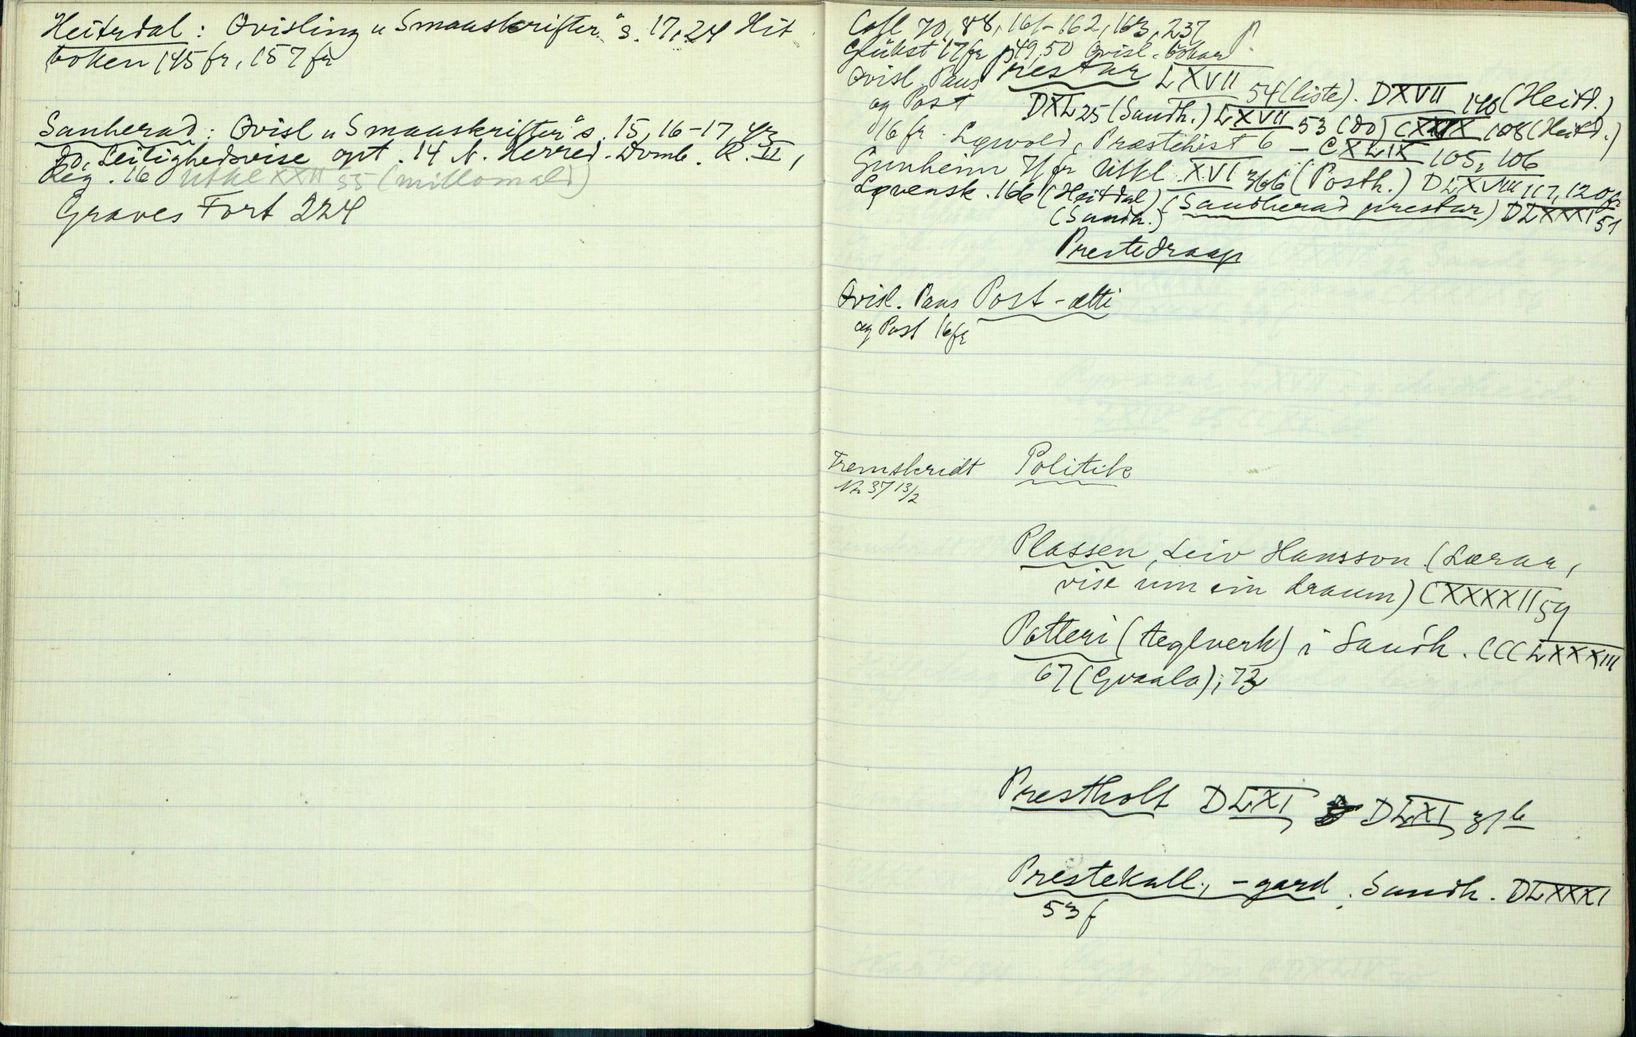 Heitrdal: Qvisling "Smaaskrifter" s. 17, 24 Hit
boken 145 fr, 157 fr
Sanherad: Qvisl "Smaaskrifter" s. 15, 16-17, 43
do, Leilighedsvise opt. 14 N. Herred. Domb. R. II,
Reg. 16 Utkl XXII 55 (millomald)
Graves Fort 224
P.
Cofl 70, 88, 161-162, 163, 237
Glükst 17 fr 49, 50 Qvisl.
Qvisl. Paus Prestar LXVII 54 (liste). DXVII 146 (Heitd.)
og Post DXL 25 (Sandh.) LXVII 53 (do) CXXIX 108 (Heitd.)
16 fr. Løvold, Præstehist 6 - CXLIX 105, 106
Gunheim 71 fr Utkl. XVI 366 (Posth.) DLXVIII 117, 120 fr
Løvensk. 166 (Heitdal) (Sandherad prestar) DLXXXI 51
(Sandh.)
Prestedraap
Qvisl. Paus Post-ætti
og Post 16 fr
Fremskridt Politik
Nr 37 13/2
Plassen, Leiv Hansson (Lærar,
vise um ein draum) CXXXXII 59
Potteri (teglverk) i Sandh. CCCLXXXIII
67 (Gvaala); 73
Prestholt DLXI, DLXI, 31 b
Prestekall, -gard, Sandh. DLXXXI
53 f